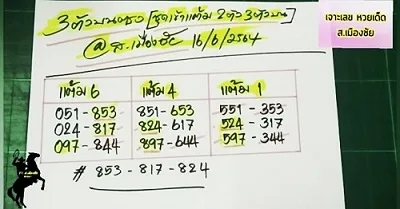 3 ตัวบนตรง [ชุดเข้าแต้ม 2 ตัว 3 ตัวบน]
@ ส.เมืองชัย 16/6/2564
เจาะเลข หวยเด็ด
ส.เมืองชัย
แต้ม 6 แต้ม 4 แต้ม 1
051-853 851-653 551-353
024-817 824-617 524-317
097-844 897-644 597-344
# 853-817-824